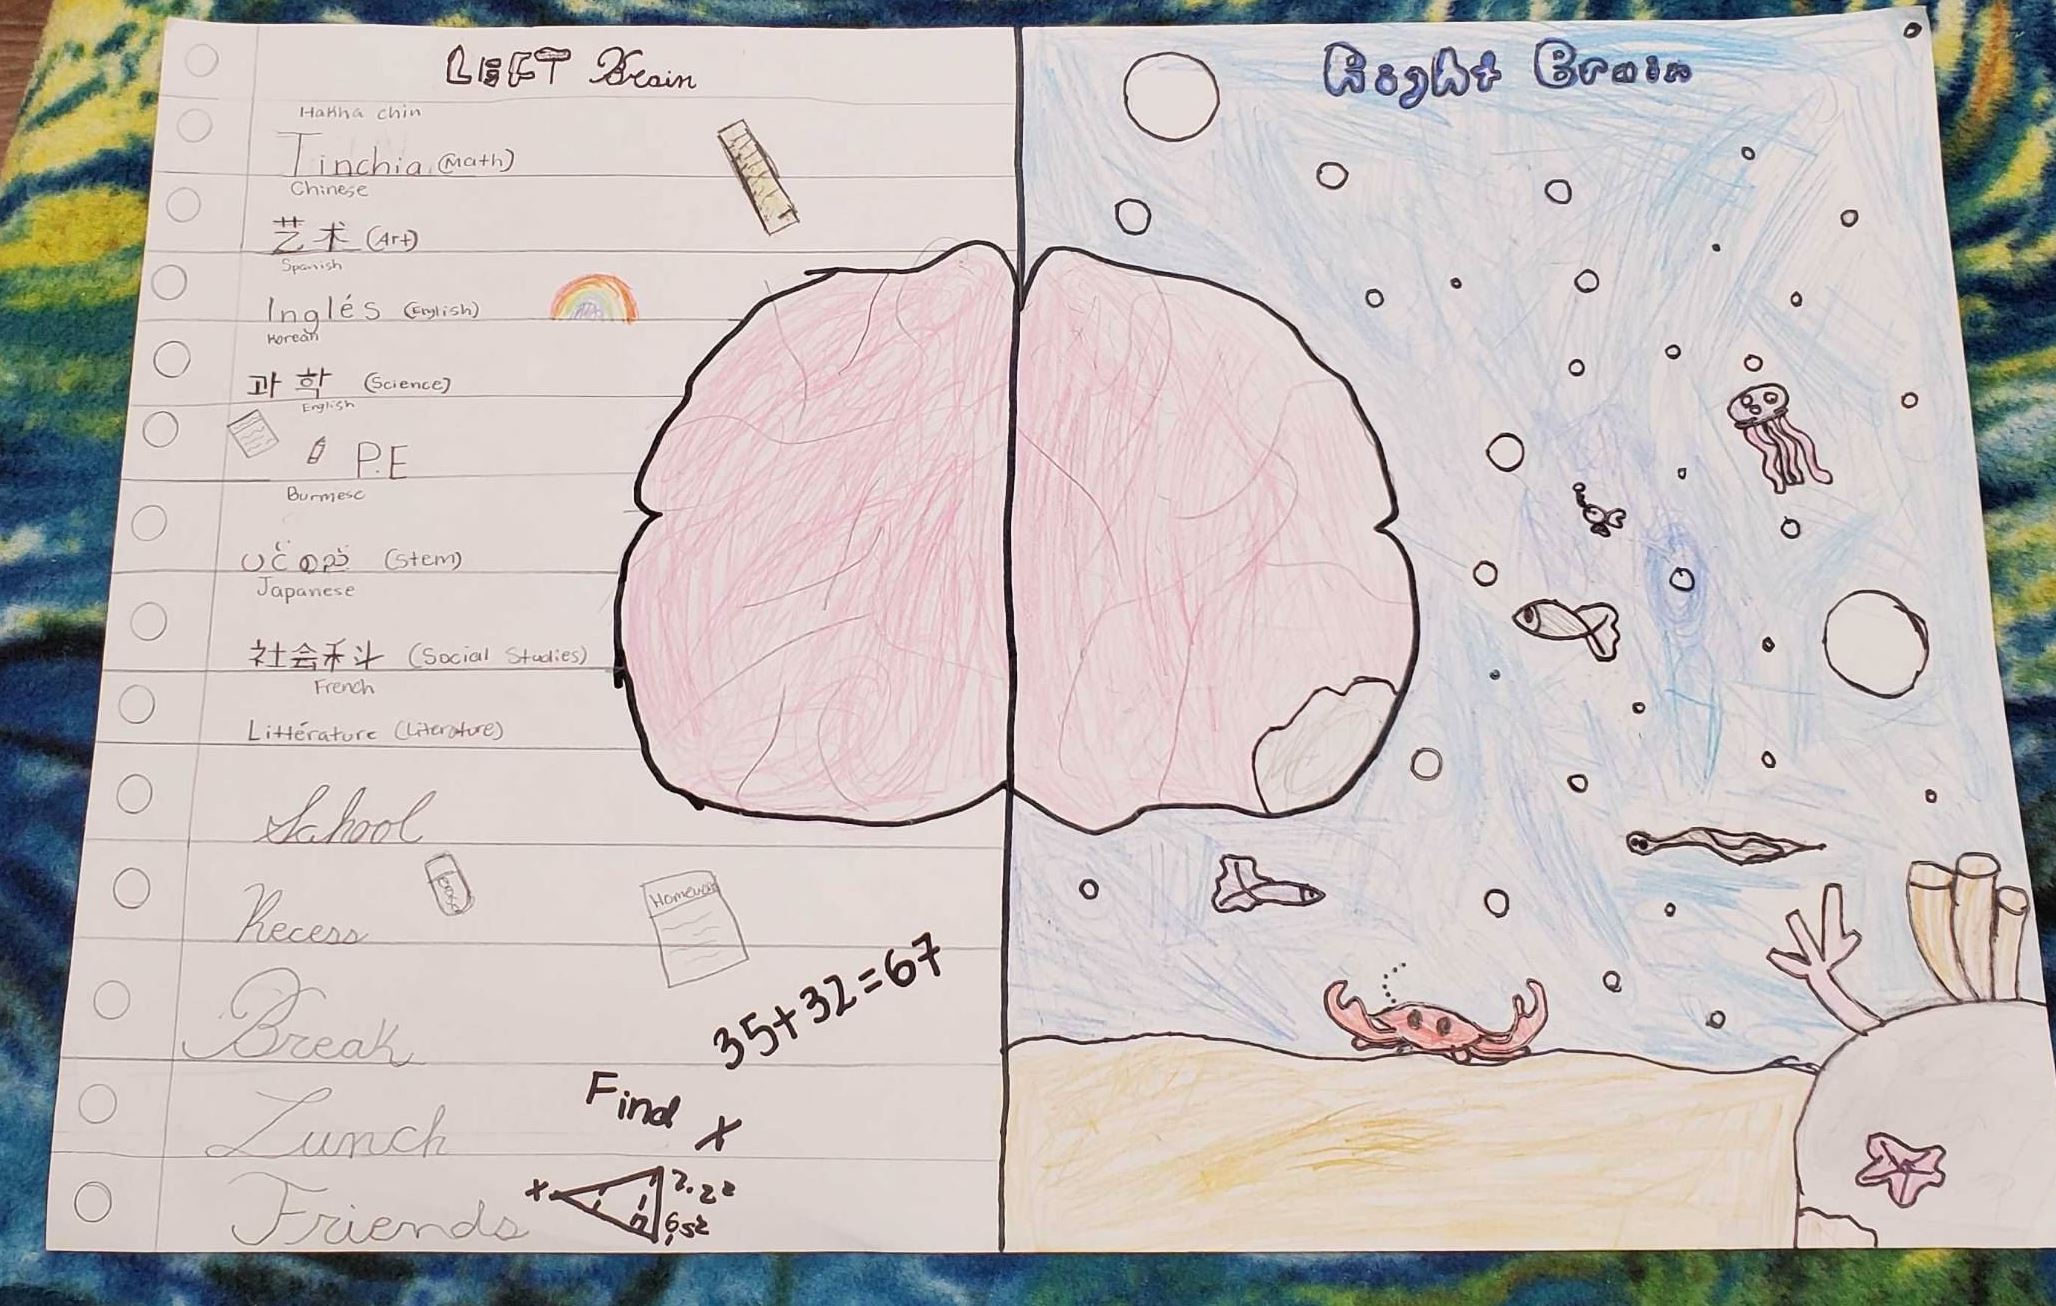 LEFT Brain
Hakha chin
Tinchia (Math)
Chinese
艺术 (Art)
Spanish
Inglés (English)
Korean
과학 (Science)
English
P.E
Burmese
(Stem)
Japanese
社会科 (Social Studies)
French
Littérature (Literature)
School
Recess
Homework
Break
35+32=67
Lunch
Find x
Friends
x
Right Brain